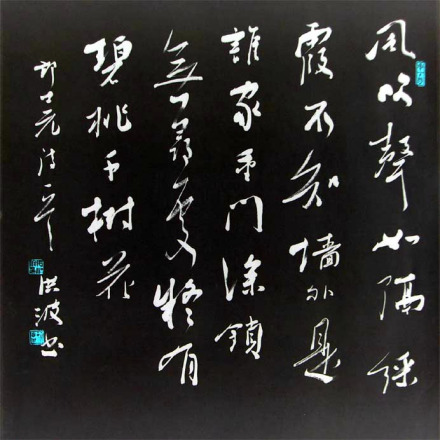 凤吹聲如隔綵
霞不知墙外是
誰家重門深鎖
無尋處疑有
碧桃千樹花
郎士元诗一首 洪波书